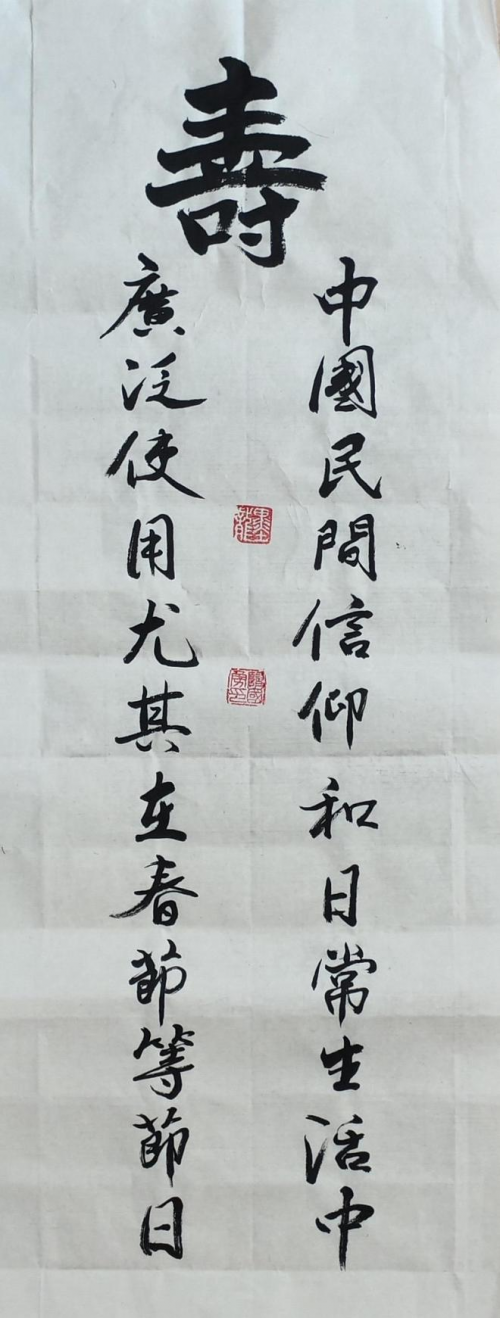 壽
中國民間信仰和日常生活中
廣泛使用尤其在春節等節日